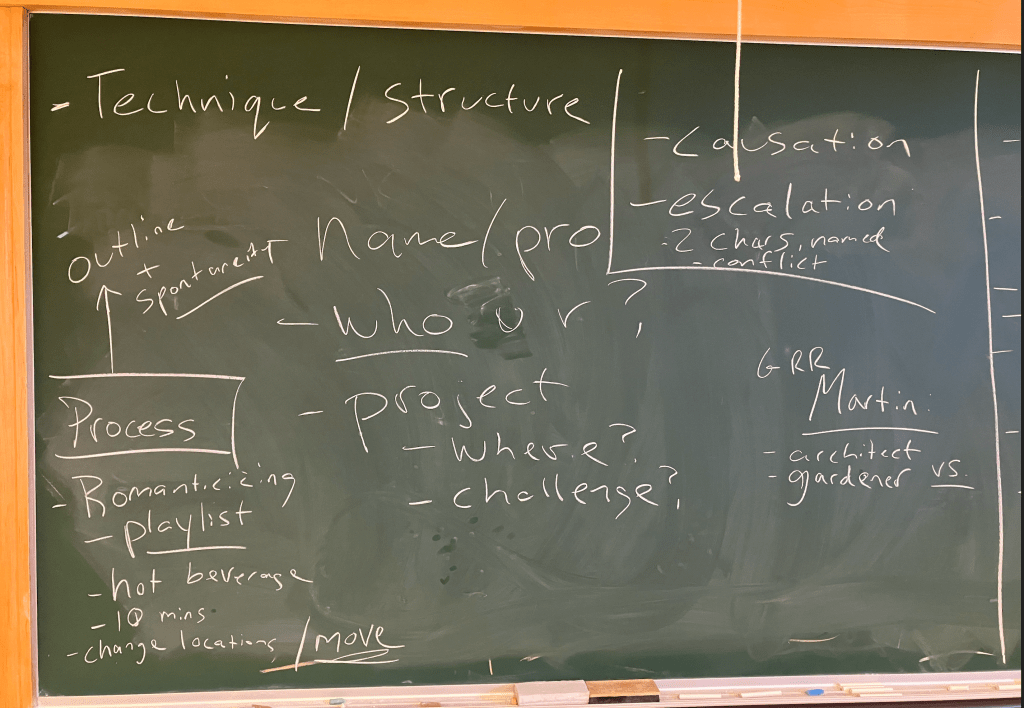 - Technique / structure
outline
+
spontaneity
Process
- Romanticizing
- playlist
- hot beverage
- 10 mins
- change locations / move
name/pro
- who u r?
- project
- where?
- challenge?
- causation
- escalation
- 2 chars, named
- conflict
GRR
Martin:
- architect
- gardener vs.